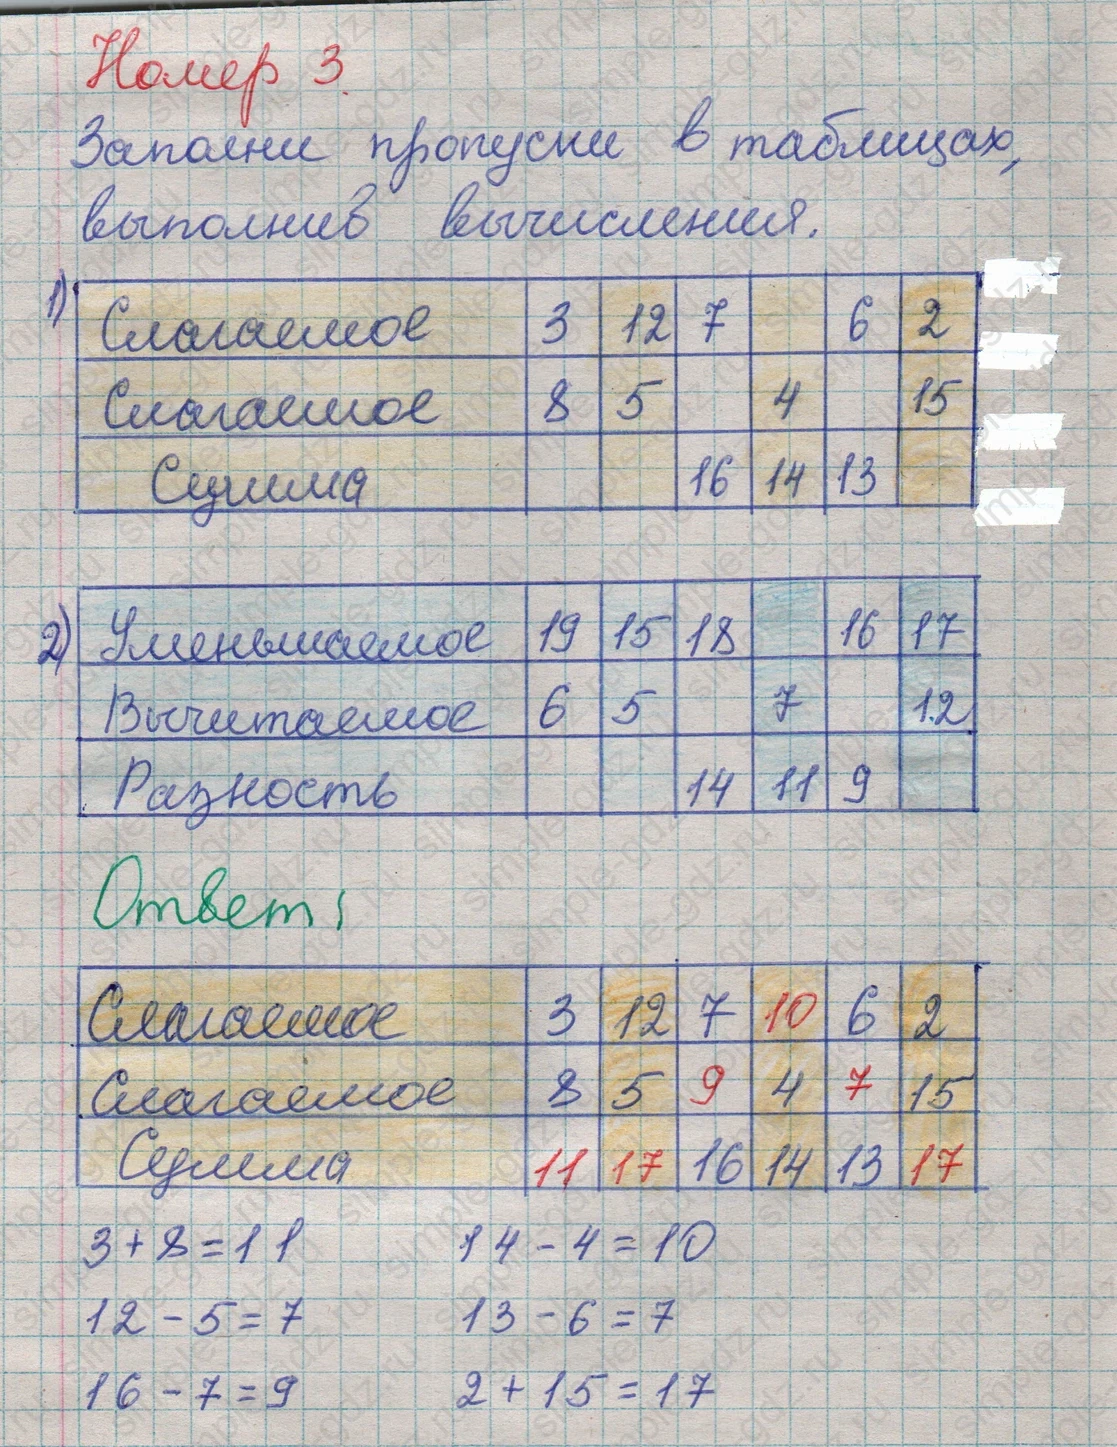 Номер 3.
Заполни пропуски в таблицах,
выполнив вычисления.
1)
Слагаемое 3 12 7 6 2
Слагаемое 8 5 4 15
Сумма 16 14 13
2)
Уменьшаемое 19 15 18 16 17
Вычитаемое 6 5 7 12
Разность 14 11 9
Ответ:
Слагаемое 3 12 7 10 6 2
Слагаемое 8 5 9 4 7 15
Сумма 11 17 16 14 13 17
3+8=11 14-4=10
12-5=7 13-6=7
16-7=9 2+15=17
simple-gdz.ru